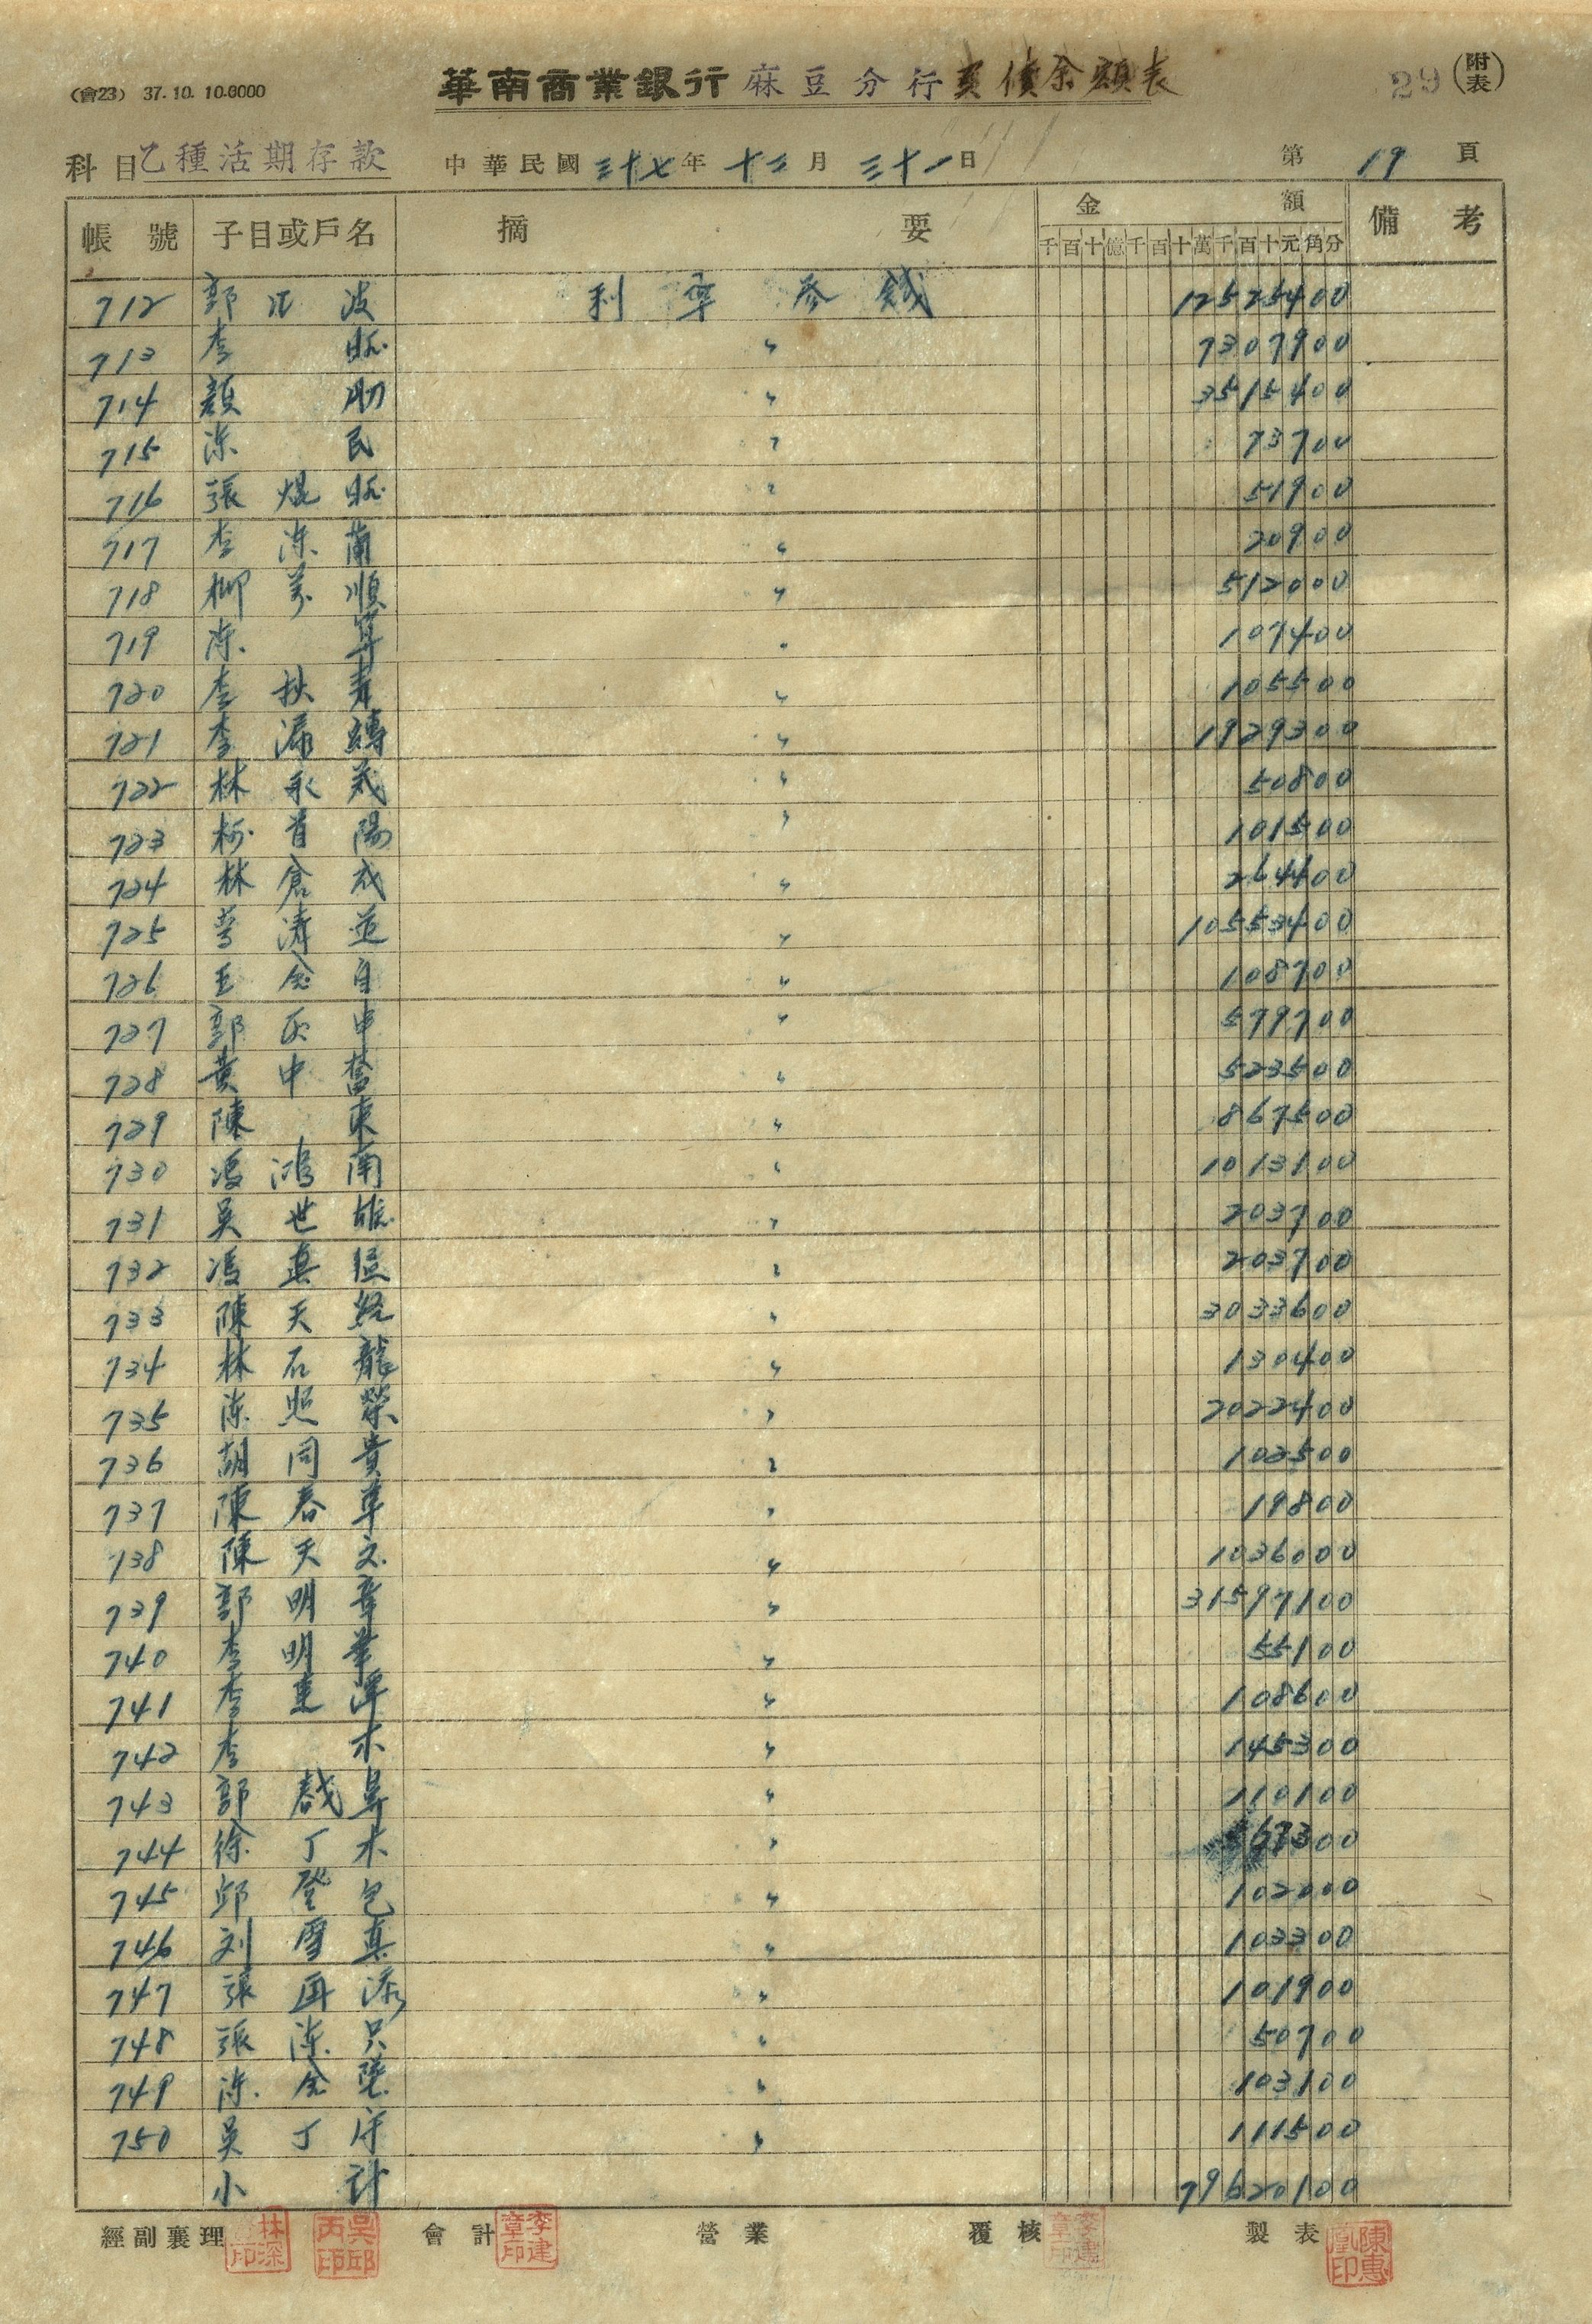 (會23) 37. 10. 10.6000
華南商業銀行 麻豆分行 負債余額表
29 (附表)
科目 乙種活期存款 中華民國 三十七 年 十二 月 三十一 日 第 19 頁
帳號 子目或戶名 摘要 金額 備考
千百十億千百十萬千百十元角分
712 郭 波 利率参錢 12525400
713 李 7307900
714 顏 助 3515400
715 陳 民 73700
716 張焜 51900
717 李陳蘭 20900
718 柳萬順 512000
719 陳 107400
720 李秋 105500
721 李 1929300
722 林永茂 50800
723 柯首陽 101500
724 林倉成 264400
725 清 10553400
726 王 108700
727 郭 申 579700
728 黃中 523500
729 陳 東 867500
730 馮鴻南 1013100
731 吳世雄 203700
732 馮真 203700
733 陳天 3033600
734 林石龍 130400
735 陳照榮 2022400
736 胡同貴 103500
737 陳春草 19800
738 陳天文 1036000
739 郭明章 31597100
740 李明 55100
741 李 108600
742 李 木 145300
743 郭 110100
744 徐丁木 67300
745 邱登包 102000
746 刘雪真 103300
747 張再添 101900
748 張陳只 50700
749 陳 103100
750 吳丁 111500
小計 79620100
經副襄理 會計 營業 覆核 製表
林深
吳邱丙印
李建章印
李建章印
陳惠凰印